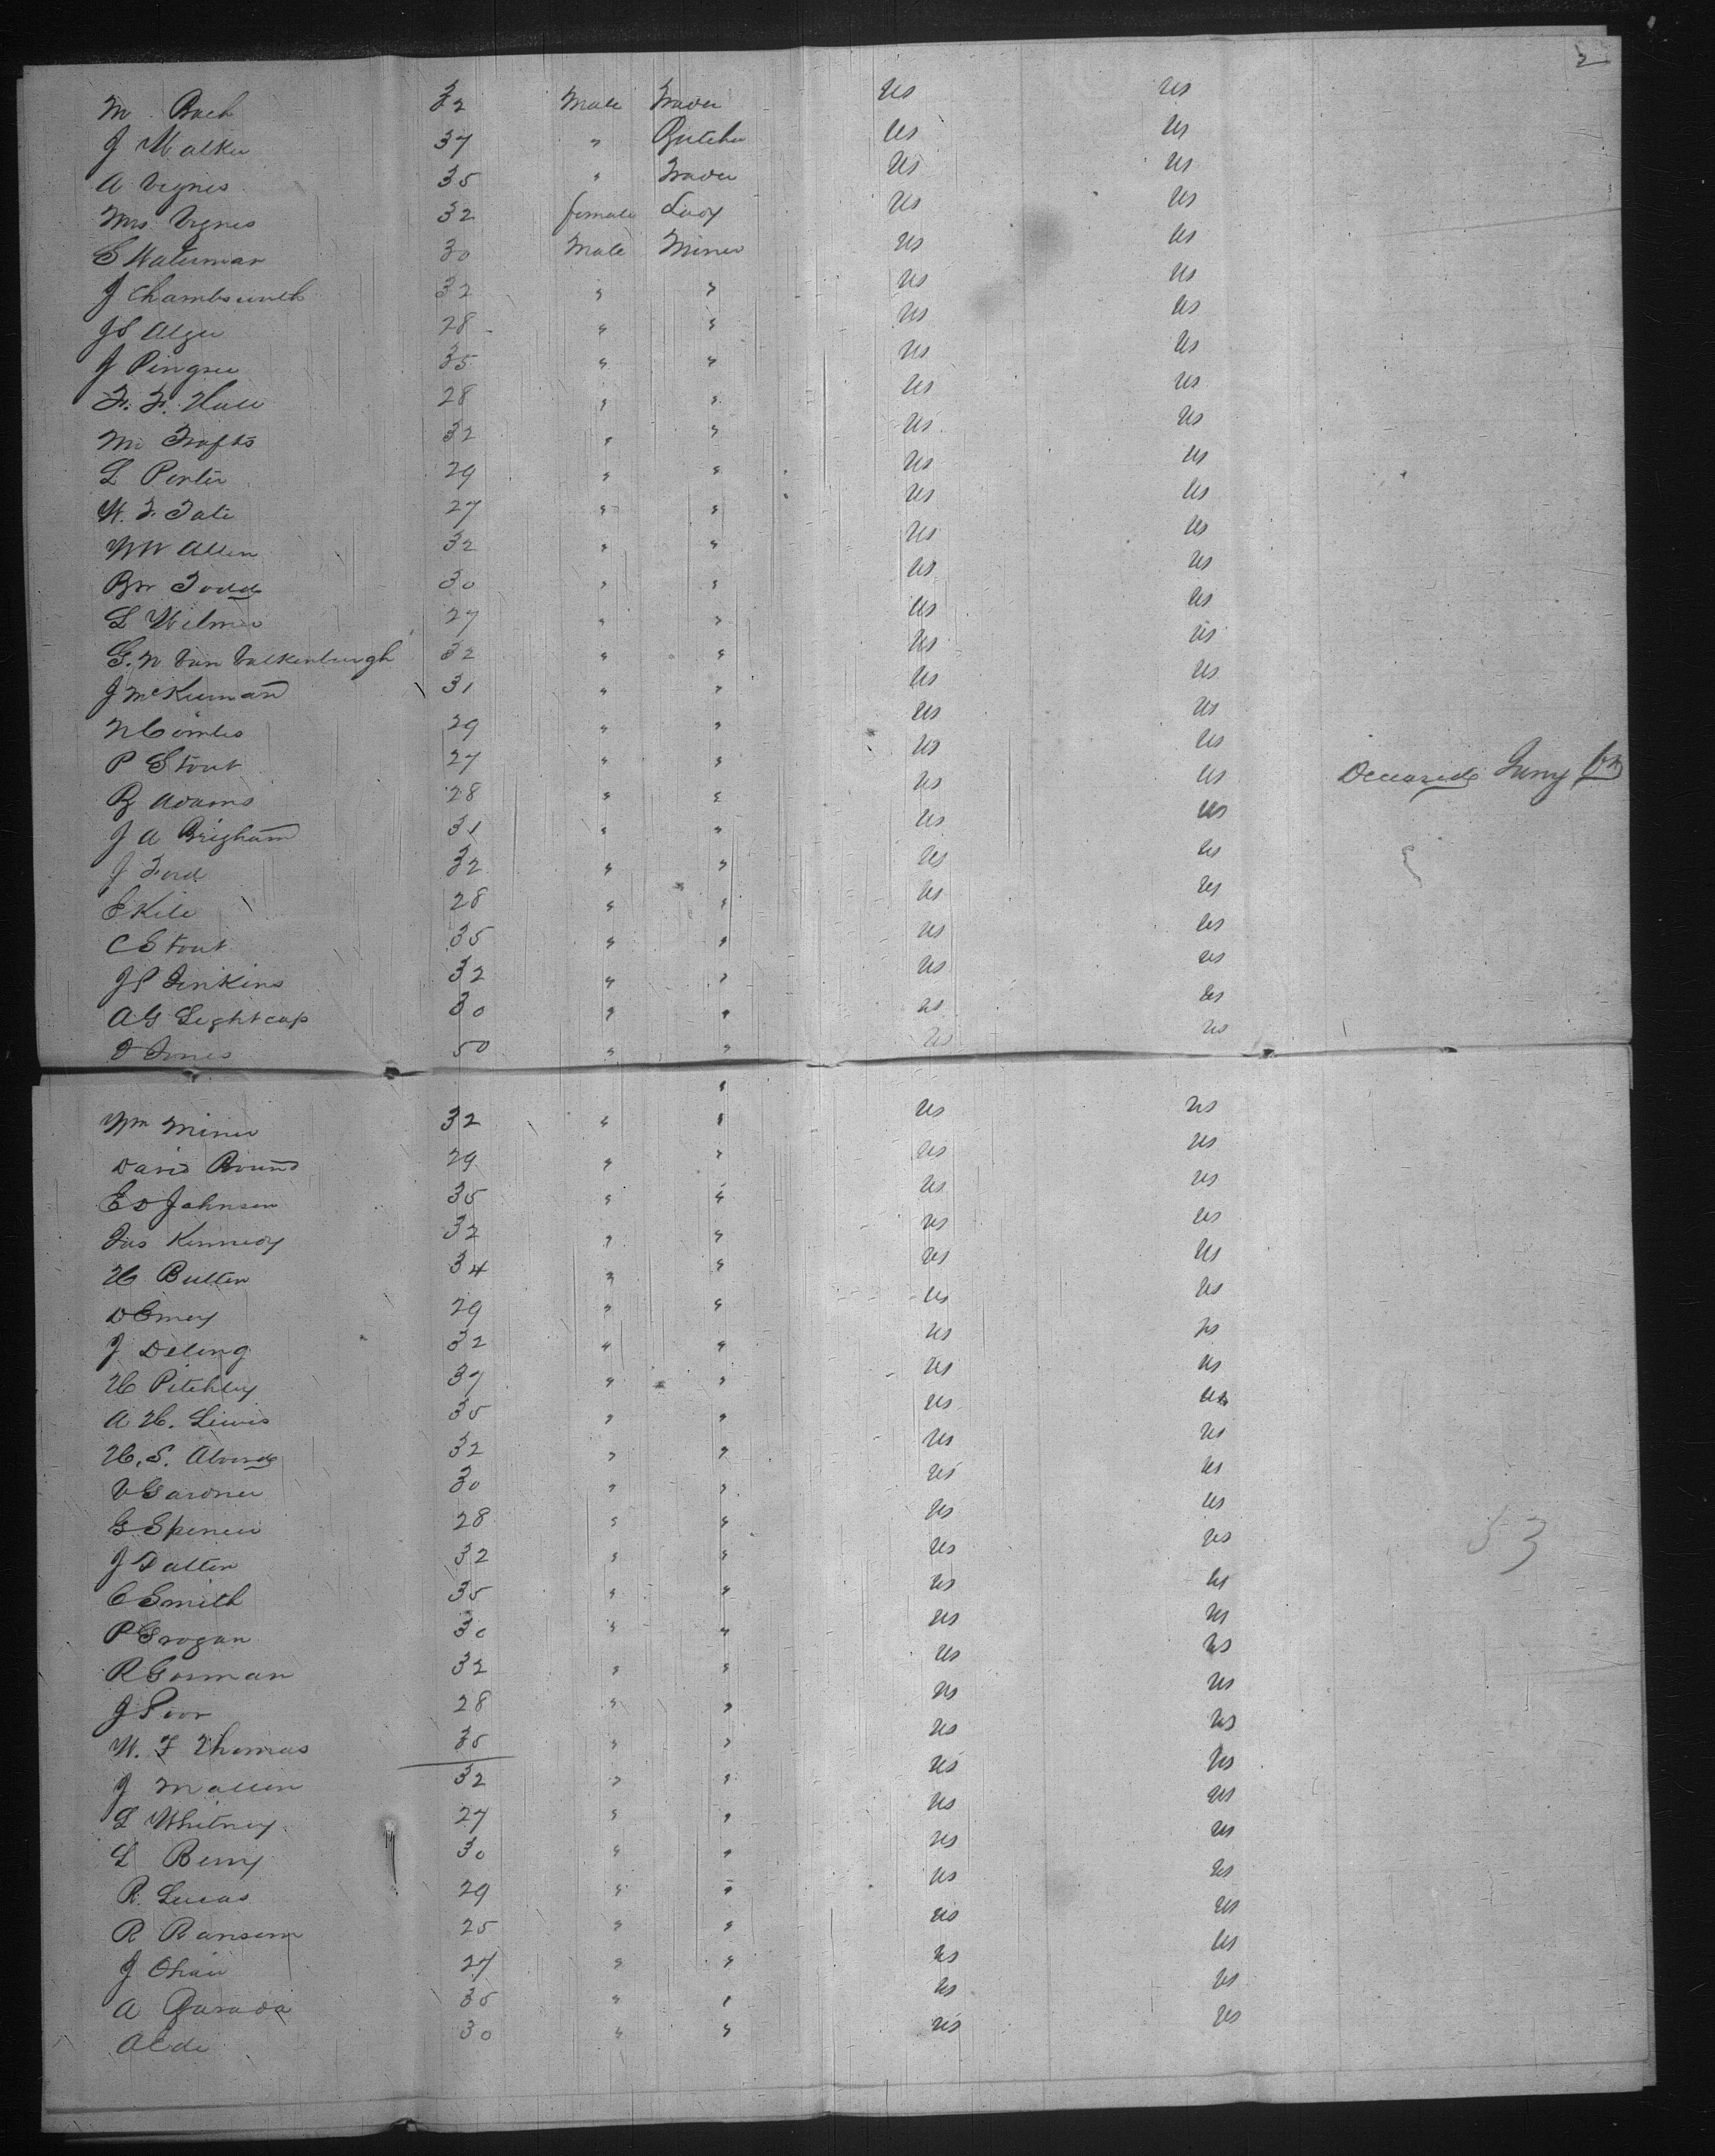 2
M. Bach 32 Male Trader US US
J Walker 37 " Butcher US US
A Vignes 35 " Trader US US
Mrs Vignes 32 female Lady US US
S Waterman 30 Male Miner US US
J 32 " " US US
JS Alger 28 " " US US
J Pingree 35 " " US US
F. F. Hall 28 " " US US
M Trafts 32 " " US US
L Porter 29 " " US US
W. F. Tate 27 " " US US
WW Allen 32 " " US US
BW Todd 30 " " US US
L Wilmer 27 " " US US
G. W Van Valkenburgh 32 " " US US
J McKiernan 31 " " US US
N Combs 29 " " US US
P Stout 27 " " US US
B Adams 28 " " US US Deceased
J A Brigham 31 " " US US
J Ford 32 " " US US
E Kile 28 " " US US
C Stout 35 " " US US
JP Jenkins 32 " " US US
AG Lightcap 30 " " US US
D Jones 50 " " US US
"
Wm Miner 32 " " US US
David Bound 29 " " US US
Ed Johnson 35 " " US US
Jas Kennedy 32 " " US US
H Butten 34 " " US US
D Emery 29 " " US US
J Deling 32 " " US US
H Pitchley 37 " " US US
A H. Lewis 35 " " US US
H. S. Alvord 32 " " US US
V Gardner 30 " " US US
G Spencer 28 " " US US
53
J Dalten 32 " " US US
C Smith 35 " " US US
P Grogan 30 " " US US
R Gorman 32 " " US US
J Poor 28 " " US US
W. F Thomas 35 " " US US
J Mallen 32 " " US US
L Whitney 27 " " US US
L Berry 30 " " US US
R. Lucas 29 " " US US
R Ransom 25 " " US US
J Ohair 27 " " US US
A 35 " " US US
30 " " US US